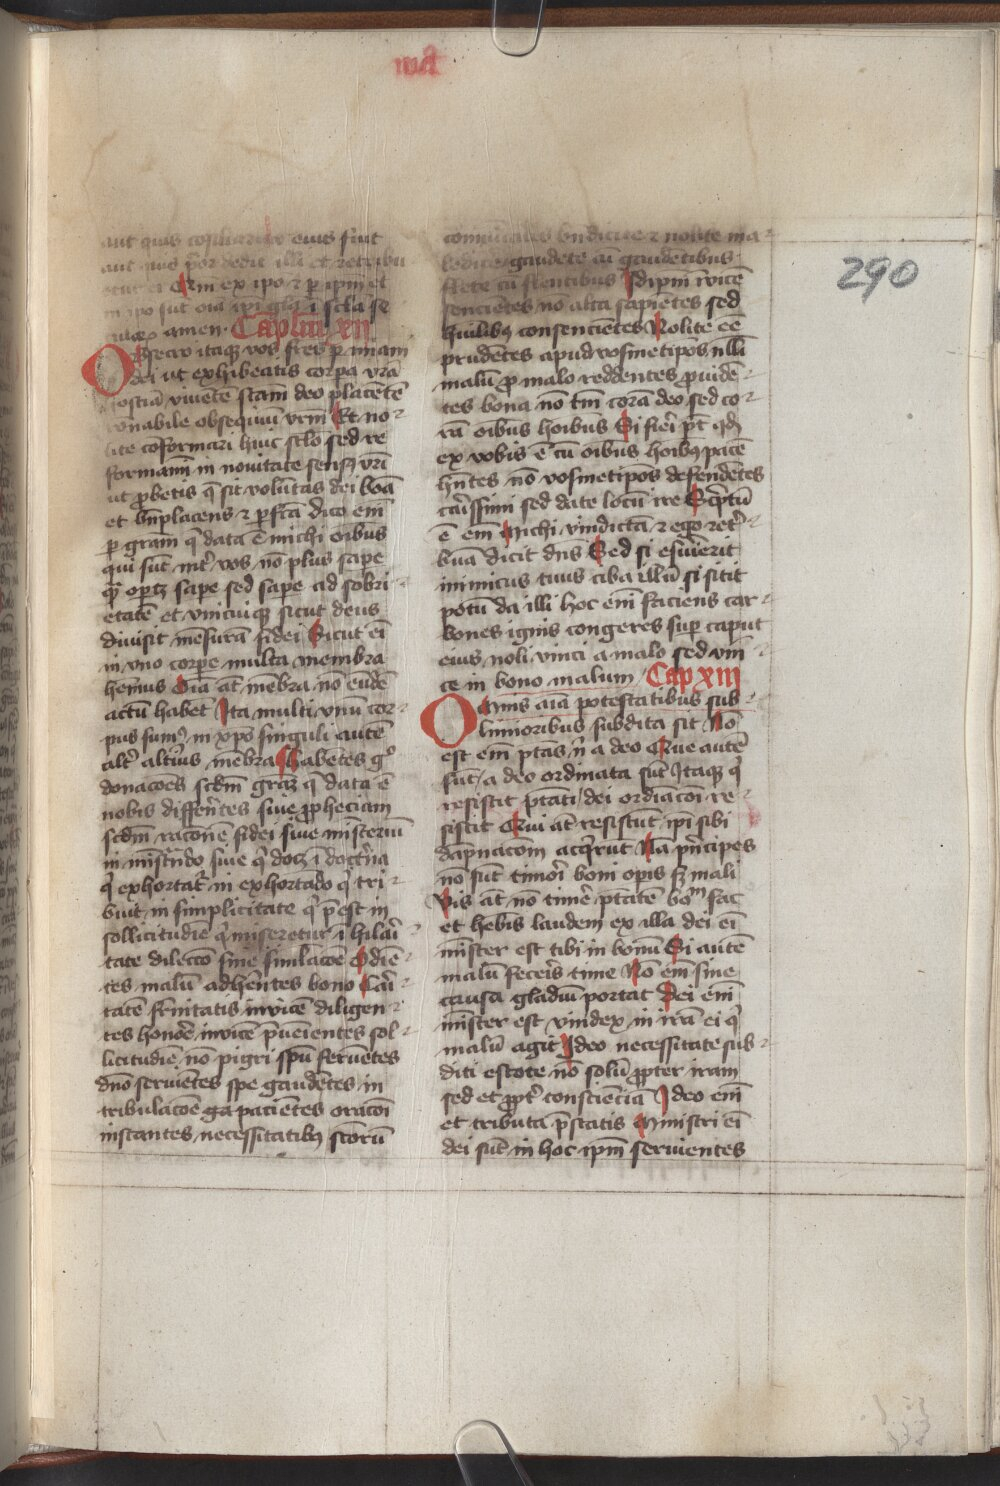 290
aut quis cosiliariꝰ eius fuit
aut quis p̄or dedit illi et retribu
etur ei Qm̄ ex ip̄o ⁊ ꝑ ip̄m et
in ip̄o sūt oīa ip̄i glīa ī scl̄a se
culoꝝ amen Caplm xii
Obsecro itaqꝫ vos fr̄es ꝑ mīam
dei ut exhibeatis corꝑa vr̄a
hostiā viuētē sc̄am deo placētē
rōnabile obsequiū vrm̄ Et no
lite cōformari huic scl̄o sed re
formamī in nouitate sensꝰ vr̄i
ut ꝓbetis q̄ sit volūtas dei bōa
et bn̄placens ⁊ ꝑfc̄a dico em̄
ꝑ gram̄ q̄ data ē michi oībus
qui sūt int̄ vos nō plus saꝑe
qͣ oportꝫ saꝑe sed saꝑe ad sobri
etatē et vnicuiqꝫ sicut deus
diuisit mēsurā fidei Sicut ei
in vno corꝑe multa membra
hēmus Oīa at mēbra nō eūdē
actū habēt Ita multi vnū cor
pus sumꝰ in xp̄o singuli autē
alt̄ alt̄ius mēbra Habētes gͦ
donacōes scdm̄ grāꝫ q̄ data ē
nobis differn̄tes siue ꝓpheciam
scdm̄ racōnē fidei siue mīsteriū
in mīstrādo siue qͥ docꝫ ī doctͥna
qͥ exhortat in exhortādo qͥ tri
buit in simplicitate qͥ p̄est in
sollicitudīe qͥ miseretur ī hilari
tate dilecco sine simlacōe Odiē
tes malū adhērētes bono Cari
tatē fr̄nitatis invicē diligen
tes honōē invicē p̄ueientes sol
licitudīe nō pigri spū feruētes
dn̄o seruiētes spe gaudētes in
tribulacōe pacientes oracōi
instantes necessitatibꝰ sc̄orū
comūicātes bn̄dicite ⁊ nolite ma
ledice gaudete cū gaudētibus
flete cū flentibus Idip̄m īvicē
sencientes nō alta sapiētes sed
huilibꝰ consencientes Nolite eē
prudētes apud vosmetip̄os nl̄li
malū ꝓ malo reddentes ꝓuidē
tes bona nō tm̄ corā deo sed co
rā oībus hoībus Si fiēi pt̄ qd̄
ex vobis ē cū oībus hoībꝰ pacē
hn̄tes nō vosmetip̄os defendētes
cārissimi sed date locū ire Sc̄ptū
ē em̄ Michi vindictā ⁊ ego retͥ
buā dicit dn̄s Sed si esurierit
inimicus tuus ciba illū si sitit
potū da illi hoc em̄ faciens car
bones ignis congeres suꝑ caput
eius noli vinci a malo sed vin
ce in bono malum Cap xiii
Omnis aīa potestatibus sub
limioribus subdita sit Nō
est em̄ ptās n̄ a deo Que autē
sūt a deo ordinata sūt Itaqꝫ qͥ
resistit ptāti dei ordīacōi re
sistit Qui at resistūt ip̄i sibi
dāpnacōm acqͥrūt Nā p̄ncipes
nō sūt timori boni opis sꝫ mali
Vis at nō timē ptātē boᵐ fac
et hēbis laudem ex illa dei ei
mīster est tibi in bonū Si autē
malū feceris time No em̄ sine
causa gladiū portat Dei em̄
mīster est vindex in irā ei qͥ
malū agit Ideo necessitate sub
diti estote nō solū ꝓpter iram
sed et ꝓpt̄ conscienciā Ideo em̄
et tributa p̄statis Ministri ei
dei sūt in hoc ip̄m seruientes